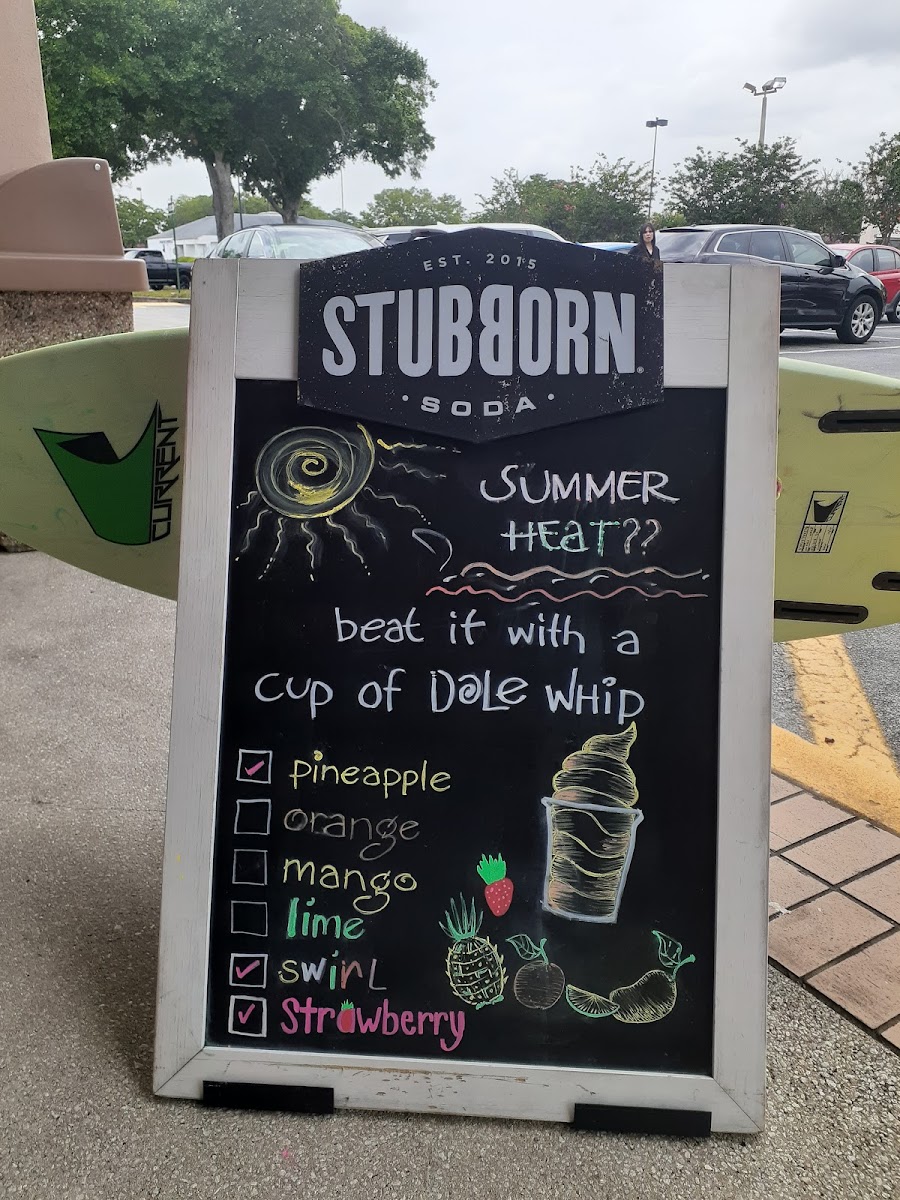 EST. 2015
STUBBORN
SODA
CURRENT
SUMMER
HEAT??
beat it with a
cup of DOLE WHIP
pineapple
orange
mango
lime
swirl
Strawberry